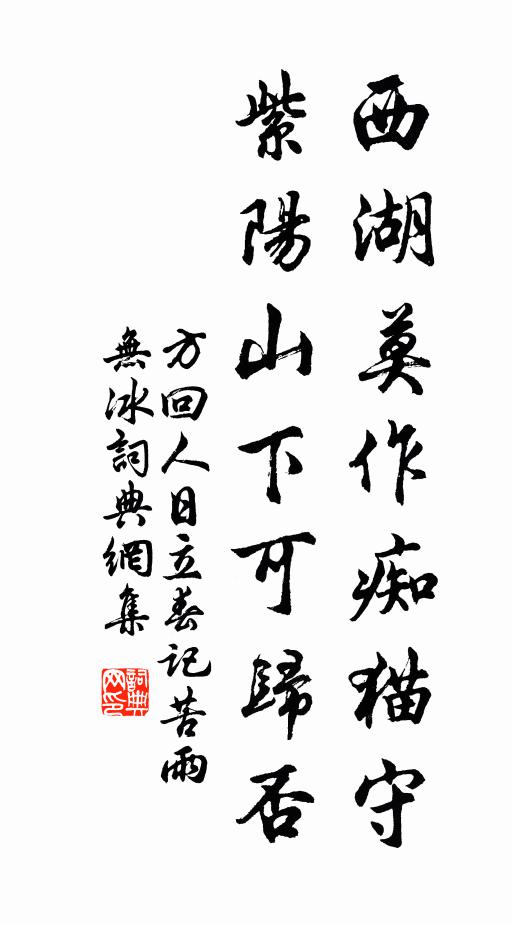 西湖莫作痴猫守
紫陽山下可歸否
方回人日立春記苦雨
無冰詞典網集
詞典网印